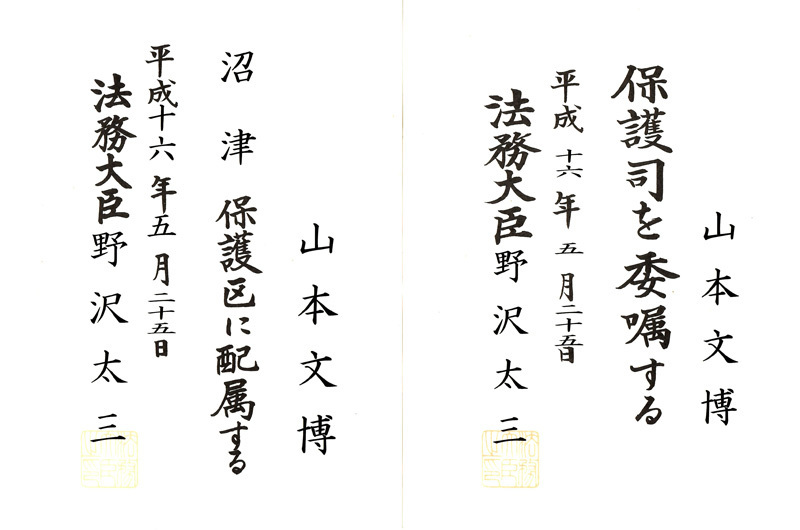 山本文博
保護司を委嘱する
平成十六年五月二十五日
法務大臣野沢太三
山本文博
沼津保護区に配属する
平成十六年五月二十五日
法務大臣野沢太三